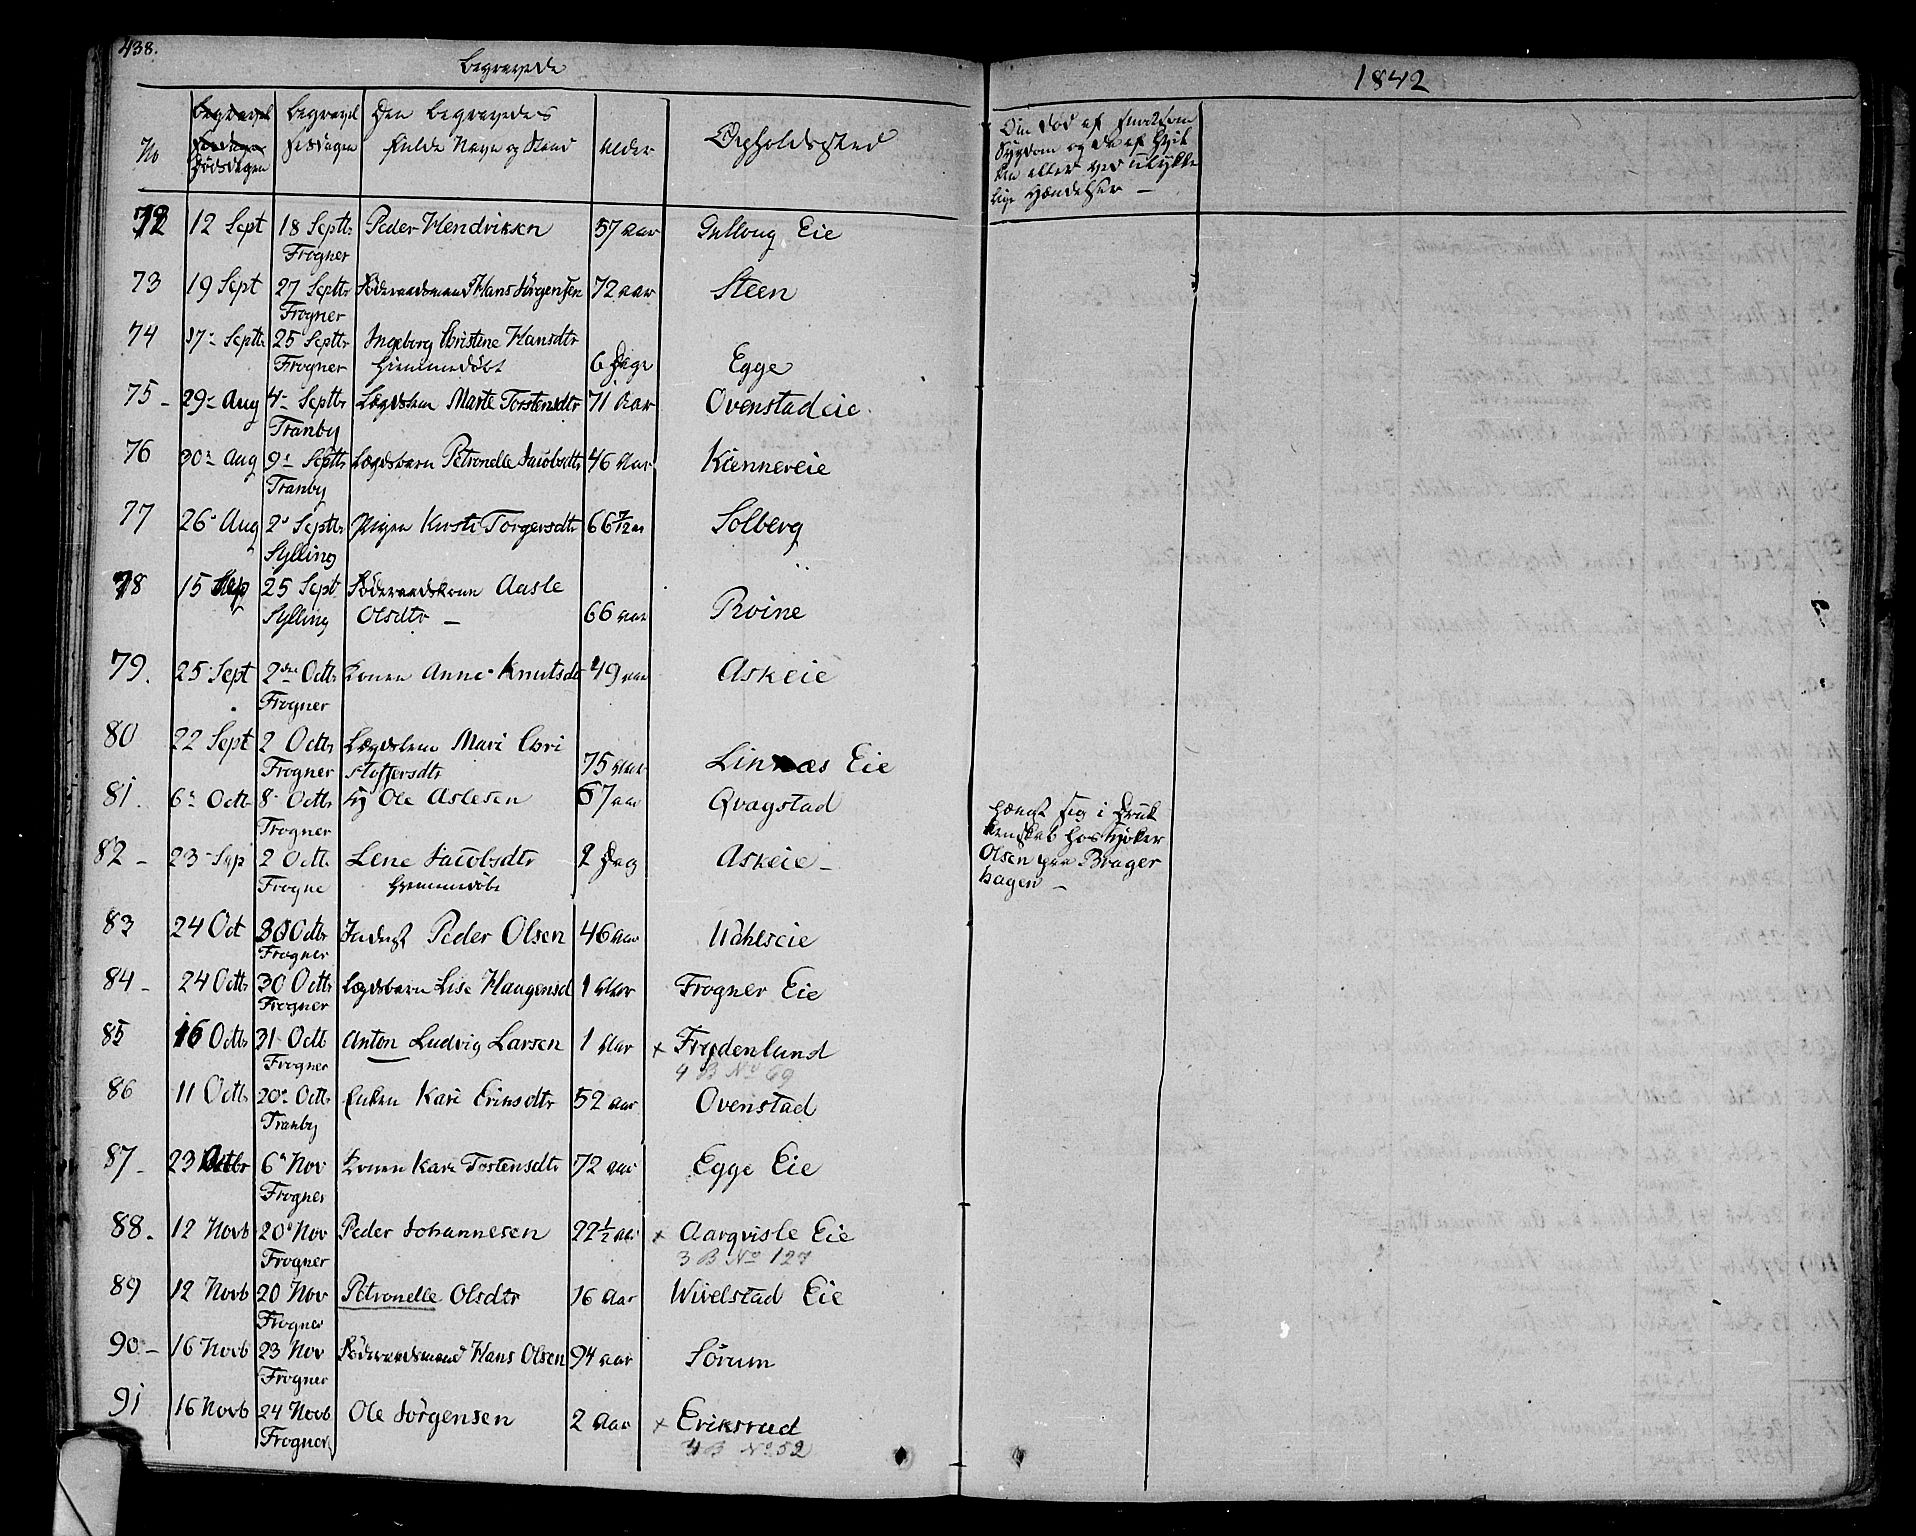 438.
Begravede
1842
No
Dødsdagen
Begravel
sesdagen
Den Begravedes
fulde Navn og Stand
Alder
Opholdssted
Om død af smitsom
Sygdom og da af hvil
ken eller ved ulykke
lige Hændelser —
72 12 Sept 18 Septbr Peder Hendriksen 57 aar Gulloug Eie
Frogner
73 19 Sept 27 Septbr Føderaadsmand Hans Jörgensen 72 aar Steen
Frogner
74 17- Septbr 25 Septbr Ingeborg Christine Hansdtr
Frogner Hjemmedøbt 6 Dage Egge
75 - 29- Aug 4- Septbr Lægdslem Marte Torstensdtr 71 Aar Ovenstadeie
Tranby
76 30- Aug 9- Septbr Lægdsbarn Petronelle Jacobsdtr 46 Aar Kiennereie
Tranby
77 26- Aug 2- Septbr Pigen Kirsti Torgersdtr 66 7/12 aar Solberg
Sylling
78 15 Sep 25 Sept Föderaadskone Aasle
Sylling Olsdtr — 66 aar Proine
79. 25 Sept 2den Octbr Konen Anne Knutsdtr 49 aar Askeie
Frogner
80 22 Sept 2 Octbr Lægdslem Mari Chri
Frogner stoffersdtr 75 Aar Linnæs Eie
81. 6- Octb 8- Octbr Ole Aslesen 67 aar Qvagstad
Frogner
hængt sig i Druk
kenskab hos Højker
Olsen paa Brager
hagen —
82 - 23 Sep 2 Octb Lene Jacobsdtr 2 Dag Askeie -
Frogne Hjemmedøbt
83 24 Oct 30 Octbr Inderst Peder Olsen 46 aar Wahlseie
Frogner
84 - 24 Octbr 30 Octbr Lægdsbarn Lise Haagensd 1 Aar Frogner Eie
Frogner
85 16 Octbr 31 Octb Anton Ludvig Larsen 1 Aar x Frydenlund
Frogner 4 B No 69
86 11 Octbr 20- Octbr Enken Kari Eriksdtr 52 aar Ovenstad
Tranby
87 - 23 Octbr 6- Nov Konen Kari Tostensdtr 72 aar Egge Eie
Frogner
88. 12 Novb 20 Nov Peder Johannesen 22 1/2 aar x Aarqvisle Eie
Frogner 3 B No 127
89 12 Novb 20 Nov Petronelle Olsdtr 16 Aar Wivelstad Eie
Frogner
90 - 16 Novb 23 Nov Föderaadsmand Hans Olsen 94 aar Sörum
Frogner
91 16 Novb 24 Novb Ole Jörgensen 2 Aar x Eriksrud
Frogner 4 B No 52